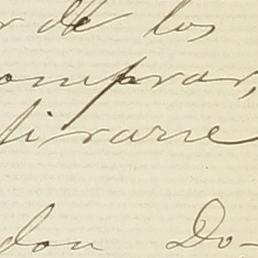 r de los
omprar,
tirarse
don Do-